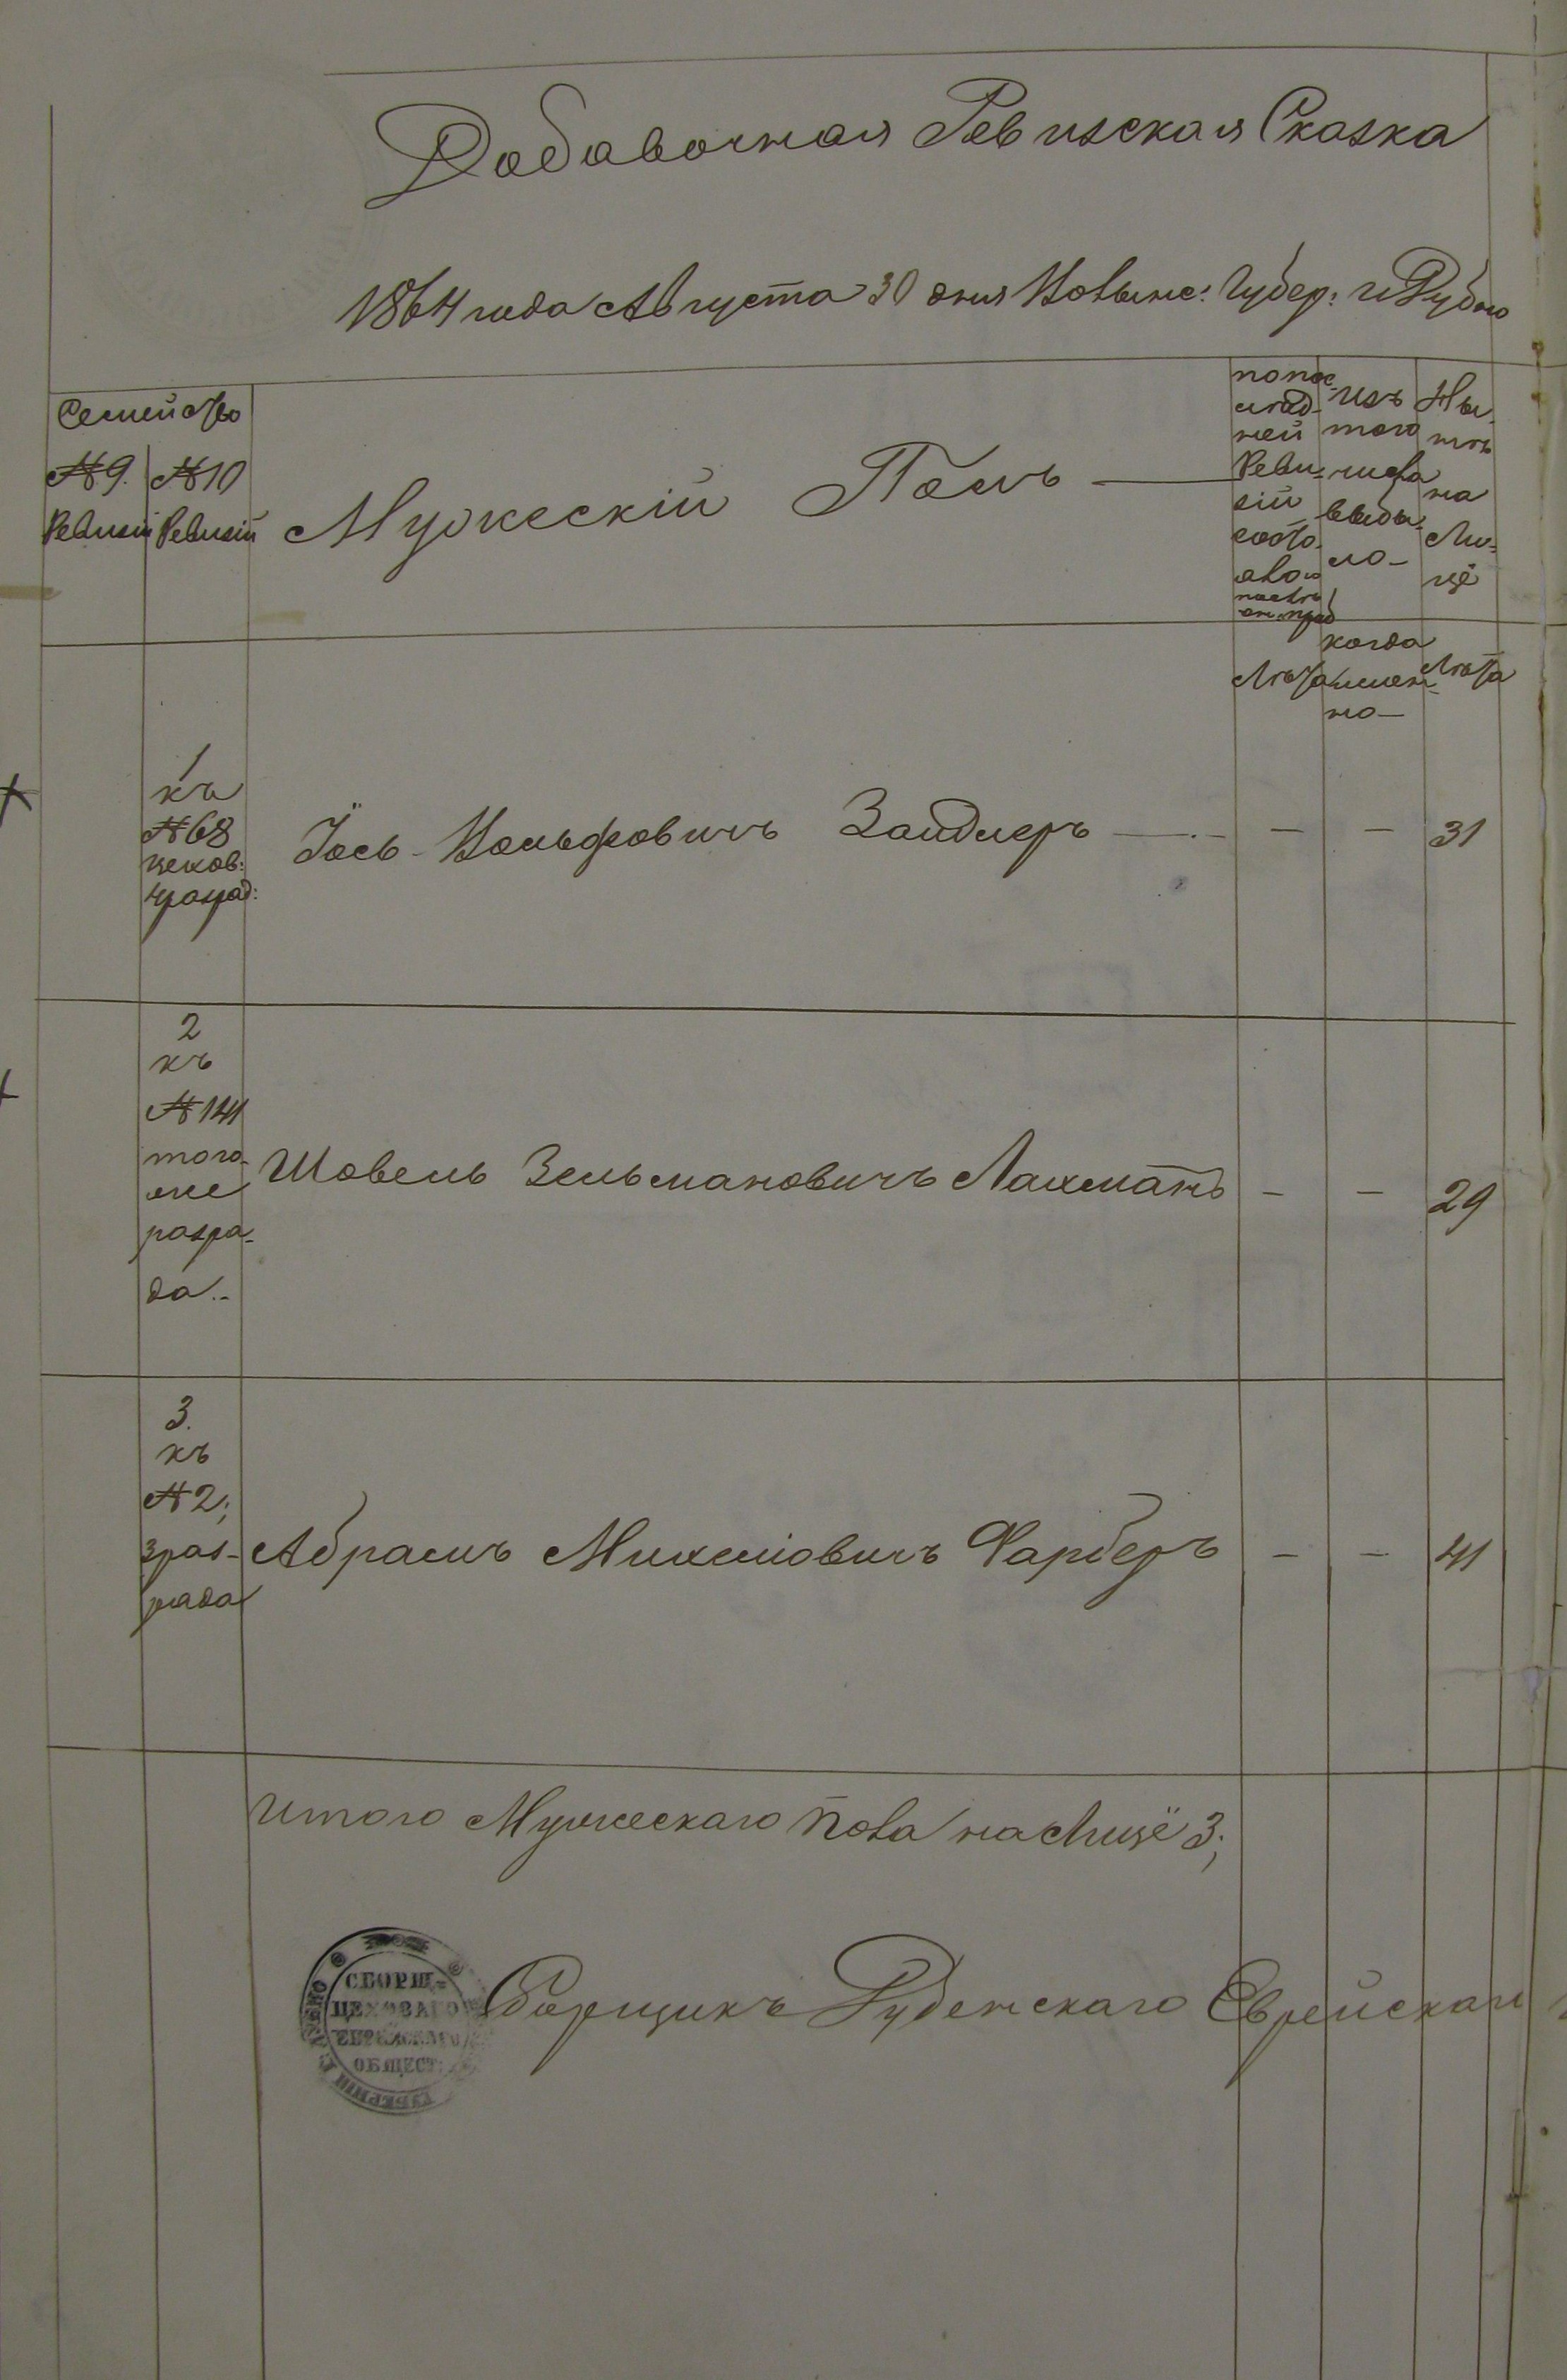 Добавочная Ревизская Сказка
1864 года Августа 30 дня Волынс: Губер: г Дубно
Семейство
№9. №10
Ревизіи Ревизіи
Мужескій Полъ
по пос-
лѣд-
ней
Реви-
зіи
состо-
яло
изъ
того
числа
выбы-
ло
Ны-
нѣ
на
Ли-
цё
Лѣта
когда
имен-
но
Лѣта
1
къ
№68
цехов:
разряд:
Іось Вольфовичъ Зайдлеръ — — 31
2
къ
№141
того-
же
разря-
да
Шовель Зельмановичъ Лахманъ — — 29
3.
къ
№2;
3 раз-
ряда
Абрамъ Михелiовичъ Фарберъ — — 41
Итого Мужескаго пола на Лицё 3;
СБОРЩ-
ЦЕХОВАГО
ЕВРЕЙСКАГО
ОБЩЕСТ:
ГУБЕРНІИ
Сборщикъ Дубенскаго Еврейскаго